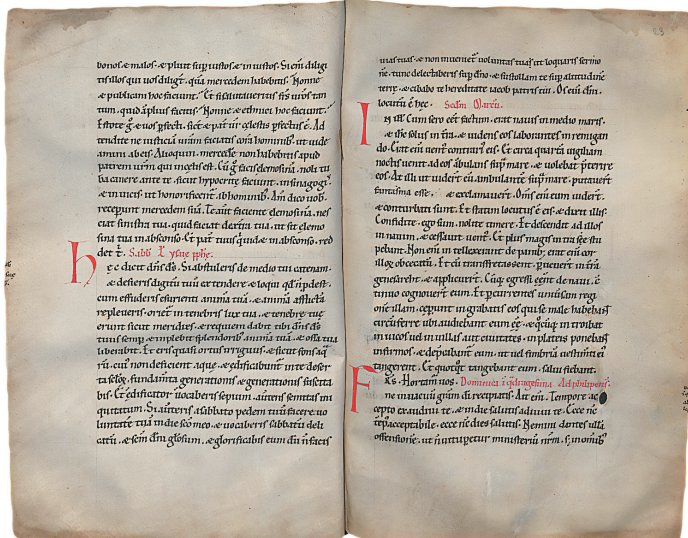 bonos & malos. & pluit sup iustos & iniustos. Si eni diligi
tis illos qui vos diligt. qua mercedem habebitis. Nonne
& publicani hoc faciunt. Et si salutaveritis frs vros tan
tum. quid aplius facitis. Nonne & ethnici hoc faciunt.
Estote g & vos pfecti. sic & pat ur celestis pfectus e. Ad
tendite ne iusticia vram faciatis cora hominib; ut vide
amini ab eis. Alioquin mercede non habebitis apud
patrem vrm qui in celis est. Cu g facis elemosina. noli tu
ba canere ante te. sicut hypocrite faciunt. in sinagogi
& in vicis. ut honorificent ab hominib;. Am dico vob.
receperunt mercedem sua. Te aut faciente elemosina. nes
ciat sinistra tua. quid faciat dextra tua. ut sit elemo
sina tua in absconso. Et pat tuus qui vid& in absconso. red
det t. Sabb. L ysaie pphe.
Hec dicit dns ds. Si abstuleris de medio tui catenam
& desieris digitu tuu extendere. & loqui qd n pdest.
cum effuderis esurienti anima tua. & anima afflicta
repleveris. oriet in tenebris lux tua. & tenebre tue
erunt sicut meridies. & requiem dabit tibi dns ds
tuus semp. & implebit splendorib; anima tua. & ossa tua
liberabit. Et eris quasi ortus irriguus. & sicut fons aq
ru. cui non deficient aque. & edificabunt in te deser
ta selor. fundamta generationis & generationis suscita
bis. Et edificator vocaberis sepium. avtens semitas in
quitatum. Si avteris a sabbato pedem tuu facere vo
luntate tua in die sco meo. & vocaberis sabbatu deli
catu. & scm dni gliosum. & glorificabis eum du n facis
vias tuas. & non invenitur voluntas tua. ut loquaris sermo
ne. tunc delectaberis sup dno. & sustollam te sup altitudine
terre. & cibabo te hereditate iacob patris tui. Os eni dni
locutu e hec. Scdm Marcu.
In ill. Cum sero eet factum. erat navis in medio maris.
& ihs solus in tra. & videns eos laborantes in remigan
do. Erat eni vent contrari eis. Et circa quarta vigiliam
noctis venit ad eos abulans sup mare. & volebat pterire
eos. At illi ut videre eu ambulante sup mare. putaver
fantasma esse. & exclamaver. Oms eni eum vider
& conturbati sunt. Et statim locutus e eis. & dixit illis.
Confidite. ego sum. nolite timere. Et descendit ad illos
in navim. & cessavit vent. Et plus magis intra se stu
pebant. Non eni intellexerant de panib;. erat eni cor
illoq obcecatu. Et cu transfretissent. pvenert in tra
genesareth. & applicuert. Cuq egressi eent de navi. c
tinuo cognovert eum. Et pcurrentes universam regi
one illam. ceperunt in grabatis eos qui se male habebant
circuferre ubi audiebant eum ee. & qcuq introibat
in vicos vel in villas aut civitates. in plateis ponebant
infirmos. & depcabant eum. ut vel fimbria vestimti ei
tangerent. Et quotqt tangebant eum. salvi fiebant.
Frs. Hortamur vos. Dominica i qdragesima. Ad philipens.
ne in vacuu gram di recipiatis. Ait eni. Tempore ac
cepto exaudivi te. & in die salutis adiuvi te. Ecce nc
tep acceptabile. ecce nc dies salutis. Nemini dantes ulla
offensione. ut n vituperetur ministeriu nrm. s; in omib;